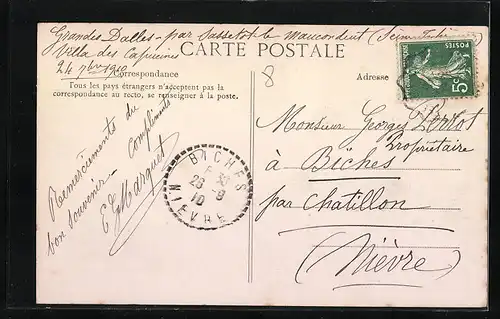 Grandes Dalles - par Sassetot le Mauconduit (Seine Inférieure)
Villa des Capucines
24 7bre 1910
CARTE POSTALE
Correspondance
Tous les pays étrangers n'acceptent pas la
correspondance au recto, se renseigner à la poste.
Adresse
8
POSTES
5c
Remerciements du
bon souvenir - Compliments
E G Marquet
BICHES
26-9
10
NIEVRE
Monsieur Georges Perrot
Propriétaire
à Biches
par Chatillon
(Nièvre)